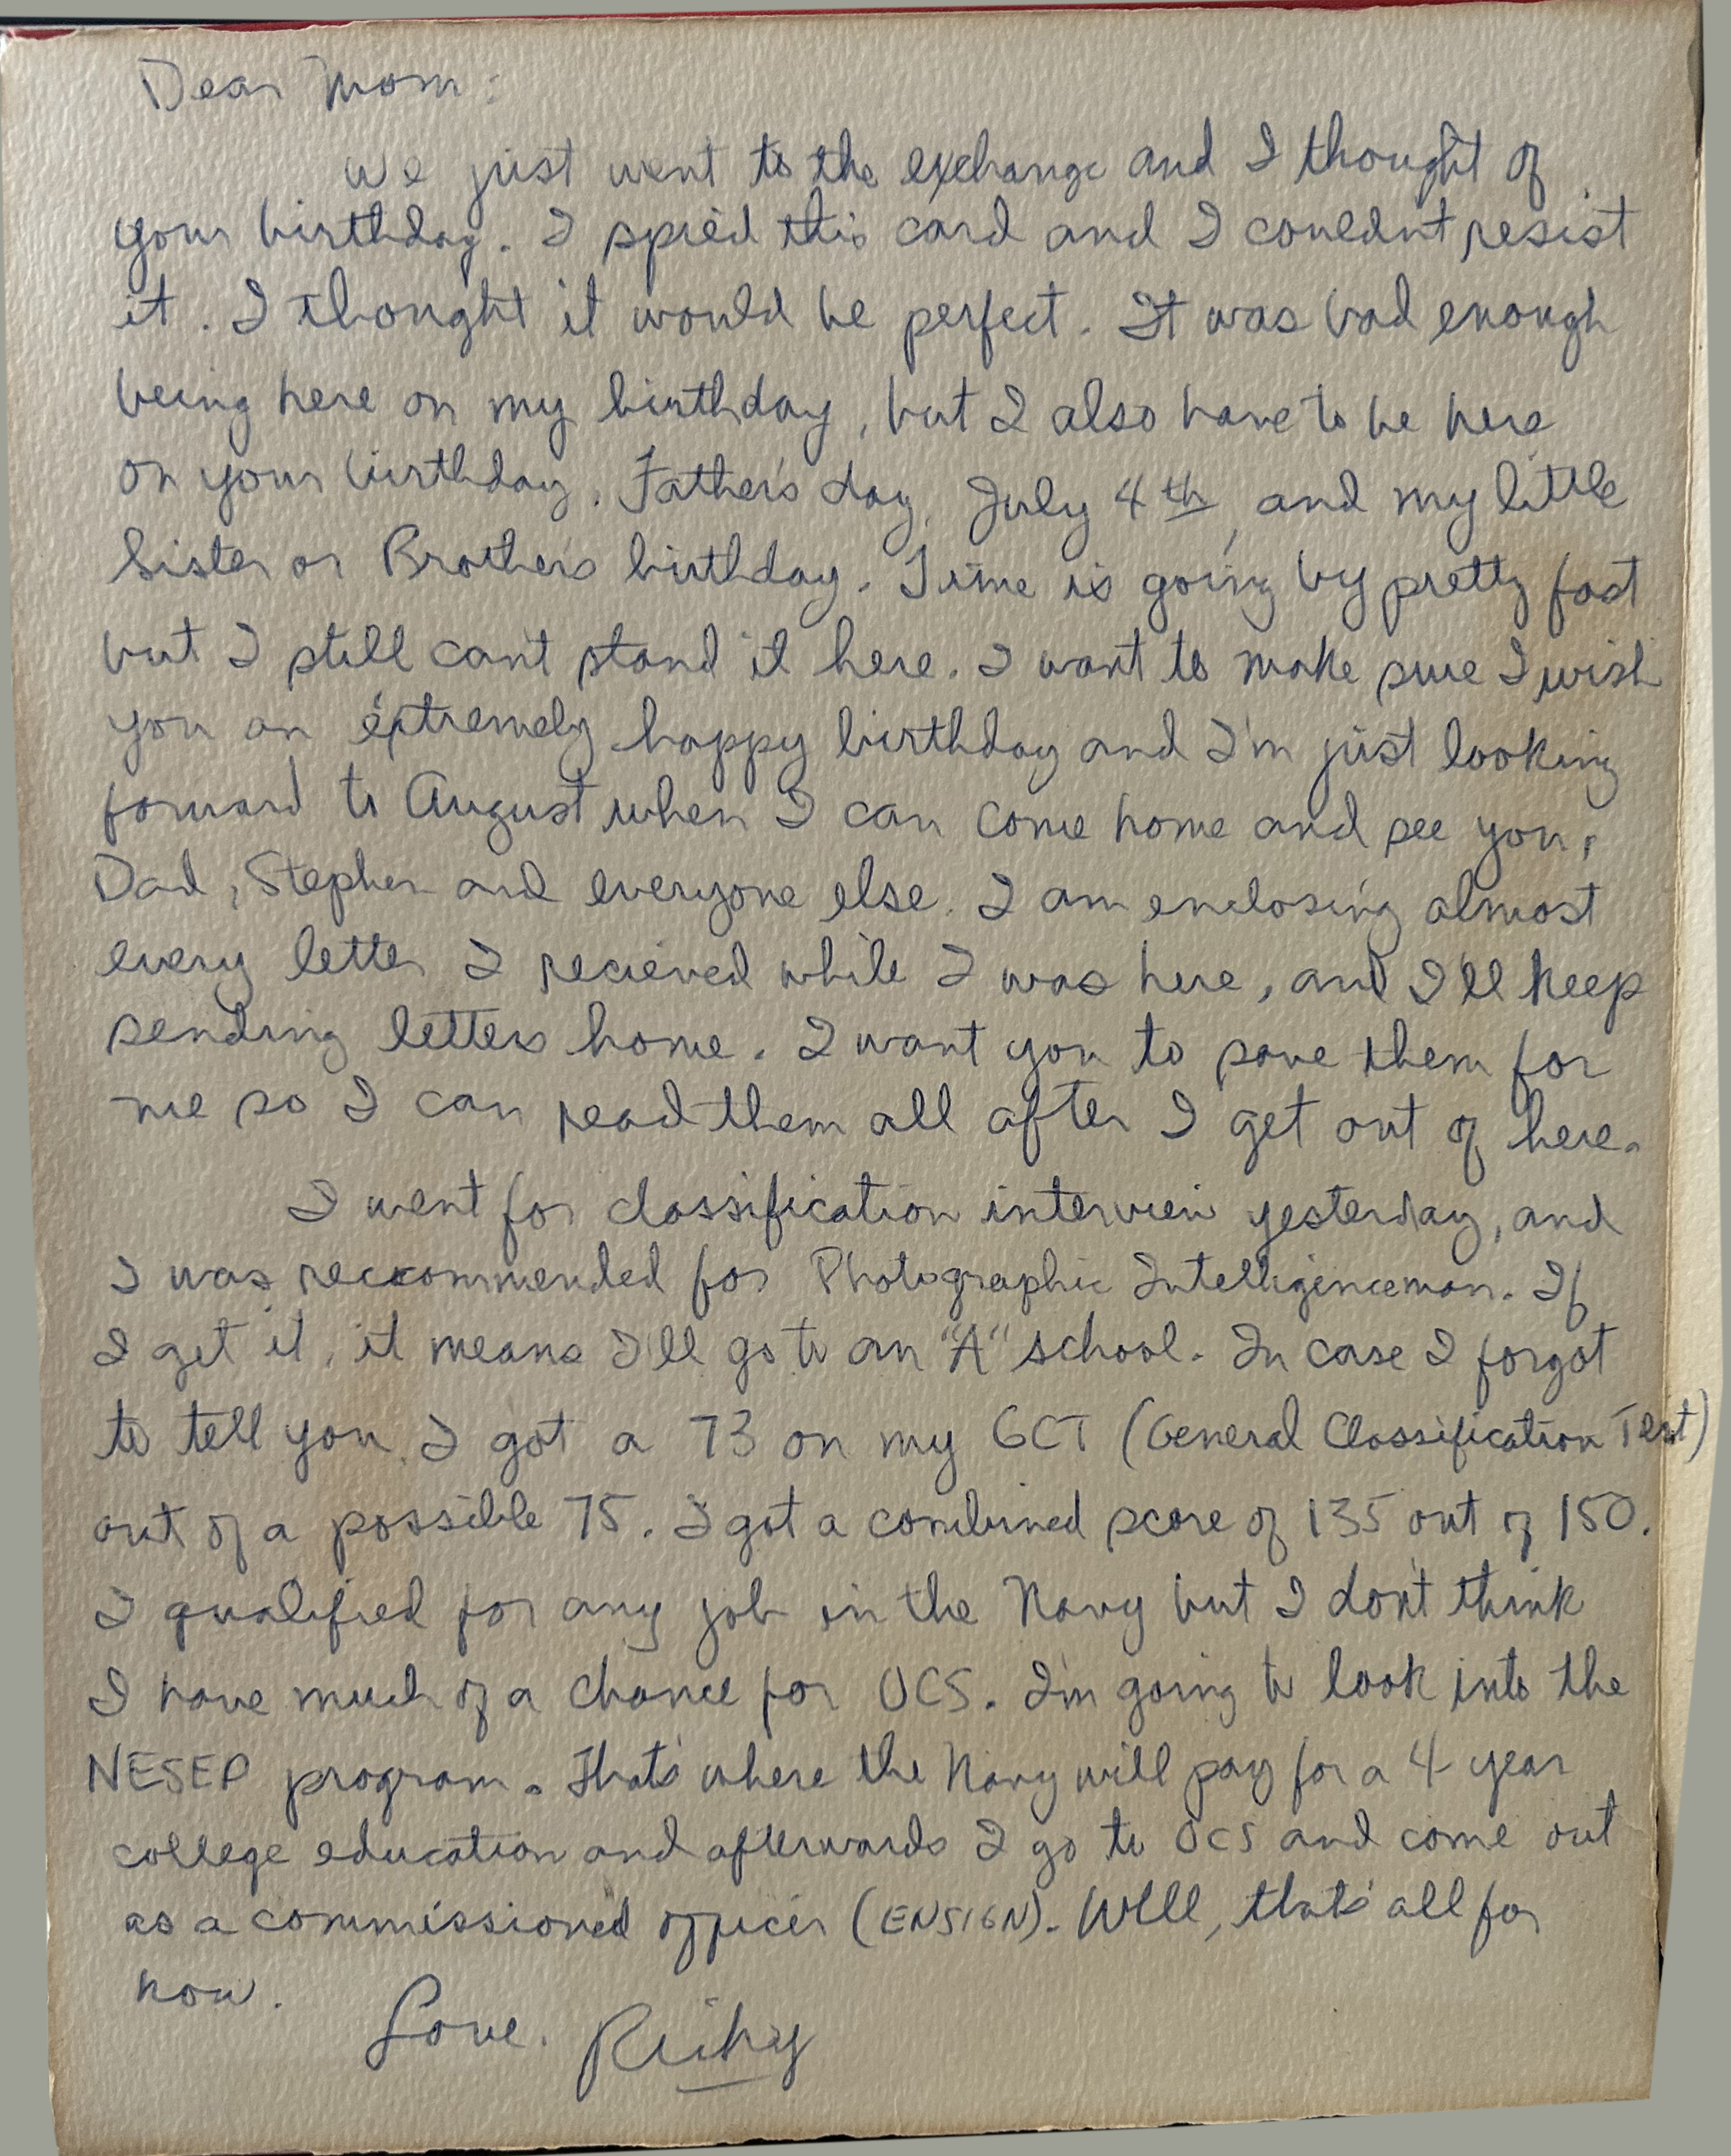 Dear Mom:
We just went to the exchange and I thought of
your birthday. I spied this card and I couldn't resist
it. I thought it would be perfect. It was bad enough
being here on my birthday, but I also have to be here
on your birthday, Father's day, July 4th, and my little
Sister or Brother's birthday. Time is going by pretty fast
but I still can't stand it here. I want to make sure I wish
you an extremely happy birthday and I'm just looking
forward to August when I can come home and see you,
Dad, Stephen and everyone else. I am enclosing almost
every letter I recieved while I was here, and I'll keep
sending letters home. I want you to save them for
me so I can read them all after I get out of here.
I went for classification interview yesterday, and
I was reccommended for Photographic Intelligenceman. If
I get it, it means I'll go to an "A" school. In case I forgot
to tell you, I got a 73 on my GCT (General Classification Test)
out of a possible 75. I got a combined score of 135 out of 150.
I qualified for any job in the Navy but I don't think
I have much of a chance for OCS. I'm going to look into the
NESEP program. That's where the Navy will pay for a 4 year
college education and afterwards I go to OCS and come out
as a commissioned officer (ENSIGN). Well, that's all for
now.
Love,